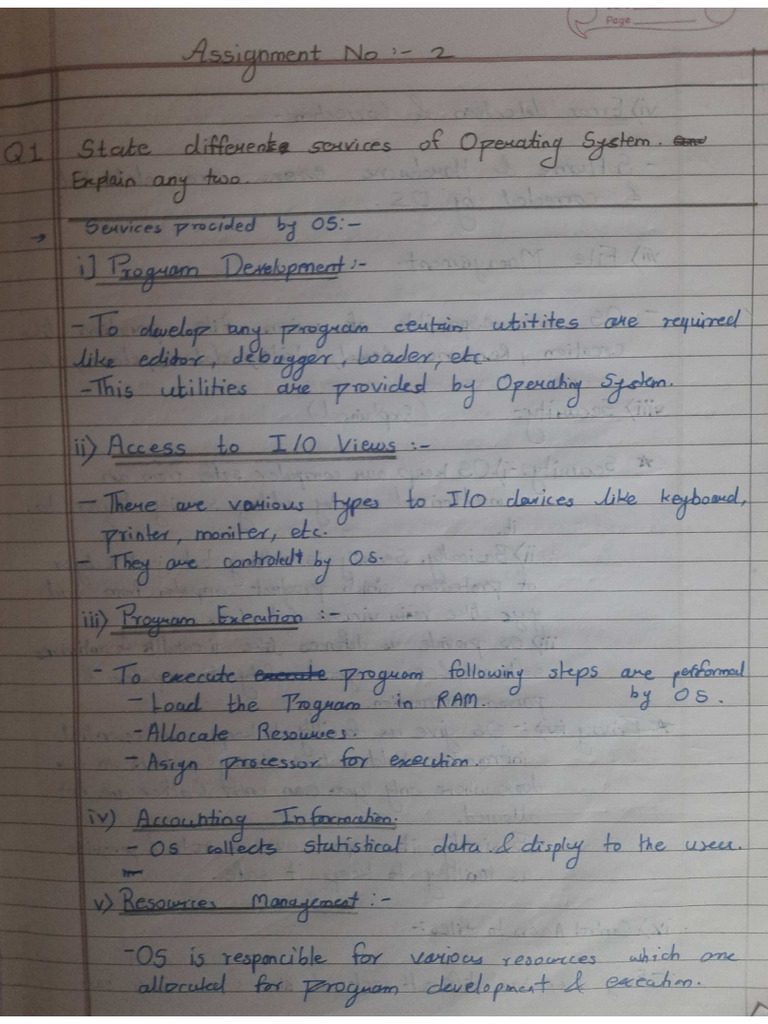 Page
Assignment No :- 2
Q1 State different services of Operating System.
Explain any two.
→ Services procided by OS:-
i] Program Development :-
- To develop any program certain utitites are required
like editor, debugger, Loader, etc
- This utilities are provided by Operating System.
ii) Access to I/O Views :-
- There are various types to I/O devices like keyboard,
printer, moniter, etc.
- They are controled by OS.
iii) Program Execution :-
- To execute execute program following steps are performed
by OS.
- Load the Program in RAM.
- Allocate Resources.
- Asign processor for execution.
iv) Accounting Information.
- OS collects statistical data & display to the user.
v) Resources Management :-
- OS is responcible for various resources which are
allocated for program development & execution.